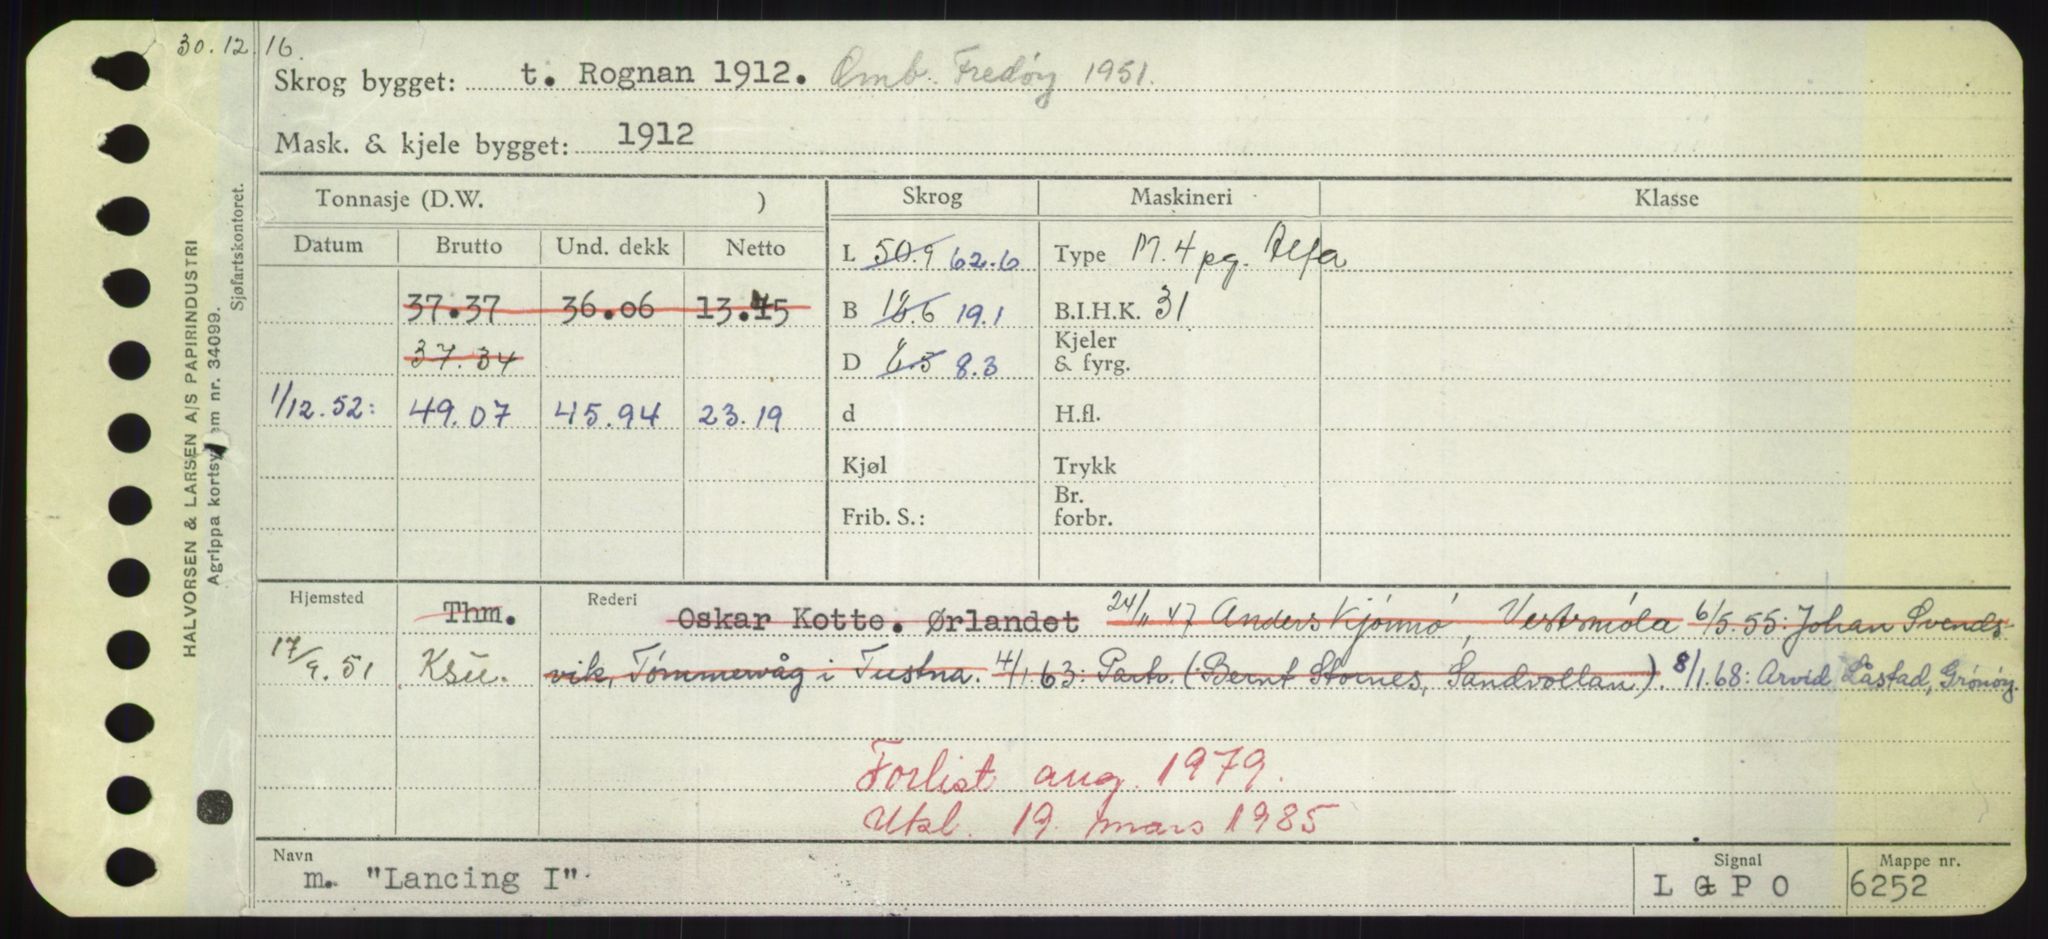 30.12.16.
Skrog bygget: t. Rognan 1912. Omb. Fredøy 1951.
Mask. & kjele bygget: 1912
Tonnasje (D.W. ) Skrog Maskineri Klasse
Datum Brutto Und. dekk Netto L 50.9 62.6 Type M. 4 pg. Alfa
37.37 36.06 13.45 B 16.6 19.1 B.I.H.K. 31
37.34 D 6.5 8.3 Kjeler & fyrg.
1/12.52: 49.07 45.94 23.19 d H.fl.
Kjøl Trykk
Frib. S.: Br. forbr.
Hjemsted Thm. Rederi Oskar Kotte. Ørlandet 24/11 47 Anders Kjønnø, Vestsmøla 6/5.55: Johan Svends-
17/9.51 Ksu. vik, Tømmervåg i Tustna. 4/1 63: Partr. (Bernt Stornes, Sandvollan). 8/1.68: Arvid Låstad, Grønøy.
Forlist aug. 1979.
Utkl. 19. mars 1985
Navn Signal Mappe nr.
m. "Lancing I" L G P O 6252
HALVORSEN & LARSEN A/S PAPIRINDUSTRI
Agrippa kortsystem nr. 34099.
Sjøfartskontoret.